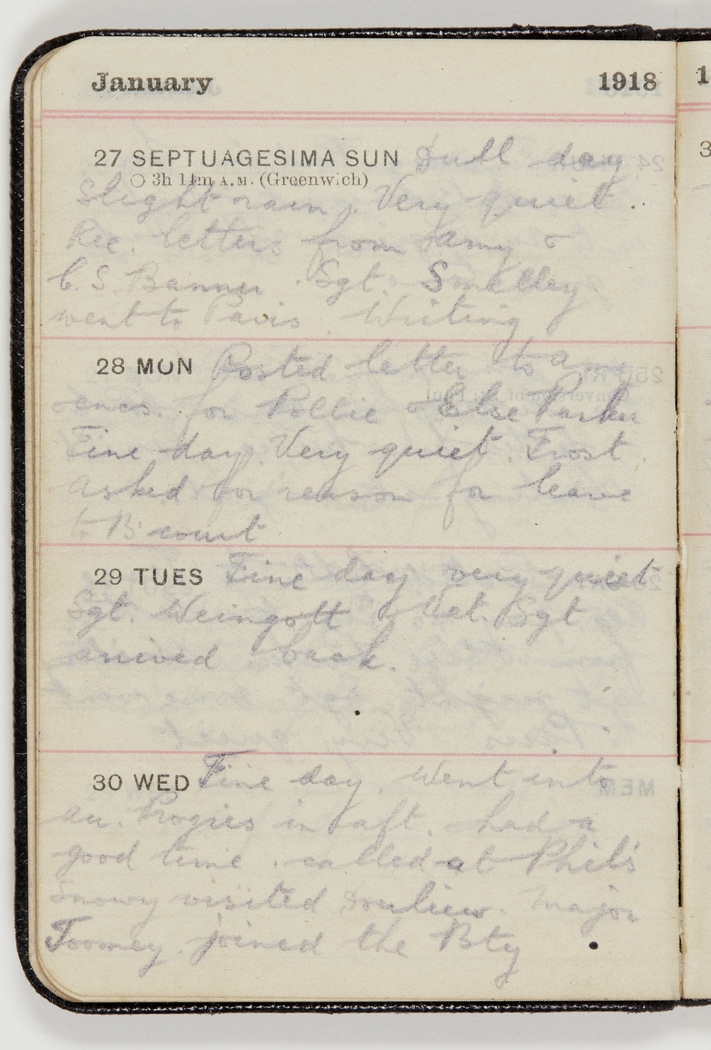 January 1918
27 SEPTUAGESIMA SUN Dull day
○ 3h 14m A.M. (Greenwich)
Slight rain. Very quiet.
Rec. letters from Amy &
C. S. Banner. Sgt. Smelley
went to Paris. Writing
28 MON Posted letter to Amy
& encs. for Pollie & Else Parker
Fine day. Very quiet. Frost.
Asked for reason for leave
to B'court
29 TUES Fine day very quiet
Sgt. Weingott & Vet. Sgt
arrived back.
30 WED Fine day. Went into
in aft. had a
good time. called at Phil's
Snowy visited Doulieu. Major
Toomey joined the Bty